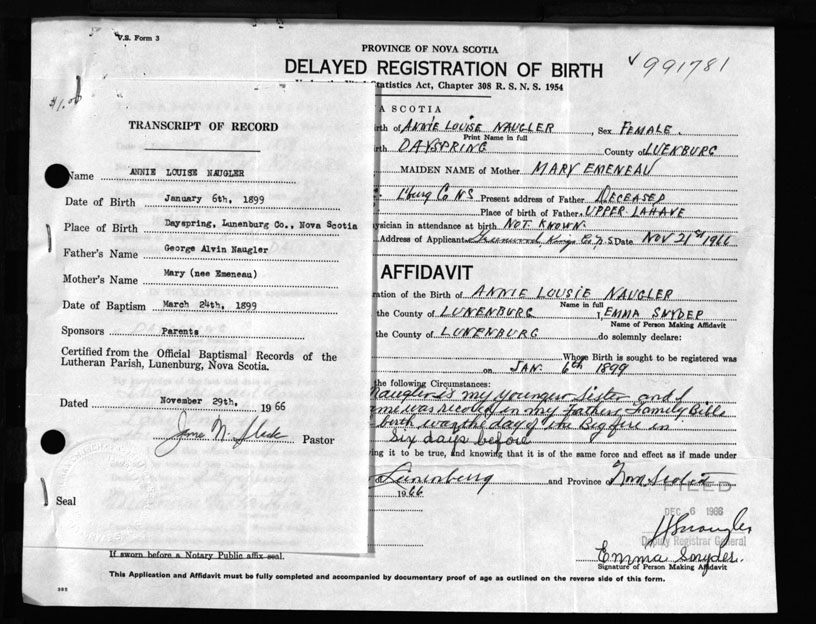 V.S. Form 3
PROVINCE OF NOVA SCOTIA
DELAYED REGISTRATION OF BIRTH
991781
Statistics Act, Chapter 308 R. S. N. S. 1954
$1.00
A SCOTIA
irth of ANNIE LOUISE NAUGLER, Sex FEMALE.
Print Name in full
irth DAYSPRING County of LUENBURG
MAIDEN NAME of Mother MARY EMENEAU
L'burg Co NS Present address of Father DECEASED
Place of birth of Father UPPER LAHAVE
ysician in attendance at birth NOT KNOWN.
Address of Applicant Greenwood, Kings Co N.S. Date NOV 21st 1966
AFFIDAVIT
ration of the Birth of ANNIE LOUSIE NAUGLER
Name in full
the County of LUNENBURG I, EMMA SNYDER
Name of Person Making Affidavit
the County of LUNENBURG do solemnly declare:
Whose Birth is sought to be registered was
on JAN. 6th 1899
the following Circumstances:
Naugler is my younger Sister and I
ame was recoled in my Fathers Family Bible
birth was the day of the Big fire in
Six days before
ing it to be true, and knowing that it is of the same force and effect as if made under
Lunenburg and Province of Nova Scotia
1966
FILED
DEC 6 1966
Deputy Registrar General
Emma Snyder.
Signature of Person Making Affidavit
TRANSCRIPT OF RECORD
Name ANNIE LOUISE NAUGLER
Date of Birth January 6th, 1899
Place of Birth Dayspring, Lunenburg Co., Nova Scotia
Father's Name George Alvin Naugler
Mother's Name Mary (nee Emeneau)
Date of Baptism March 24th, 1899
Sponsors Parents
Certified from the Official Baptismal Records of the
Lutheran Parish, Lunenburg, Nova Scotia.
Dated November 29th, 1966
Pastor
Seal
If sworn before a Notary Public affix seal.
This Application and Affidavit must be fully completed and accompanied by documentary proof of age as outlined on the reverse side of this form.